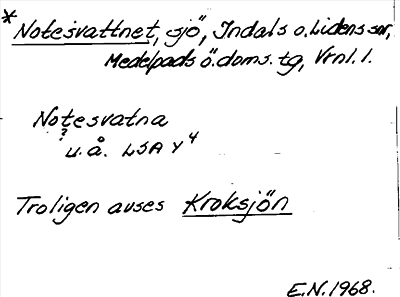 *Notesvattnet, sjö, Indals o. Lidens snr,
Medelpads ö. doms. tg, Vrnl. l.
Notesvatna
?
u. å. LSA Y4
Troligen avses Kroksjön
E.N. 1968.